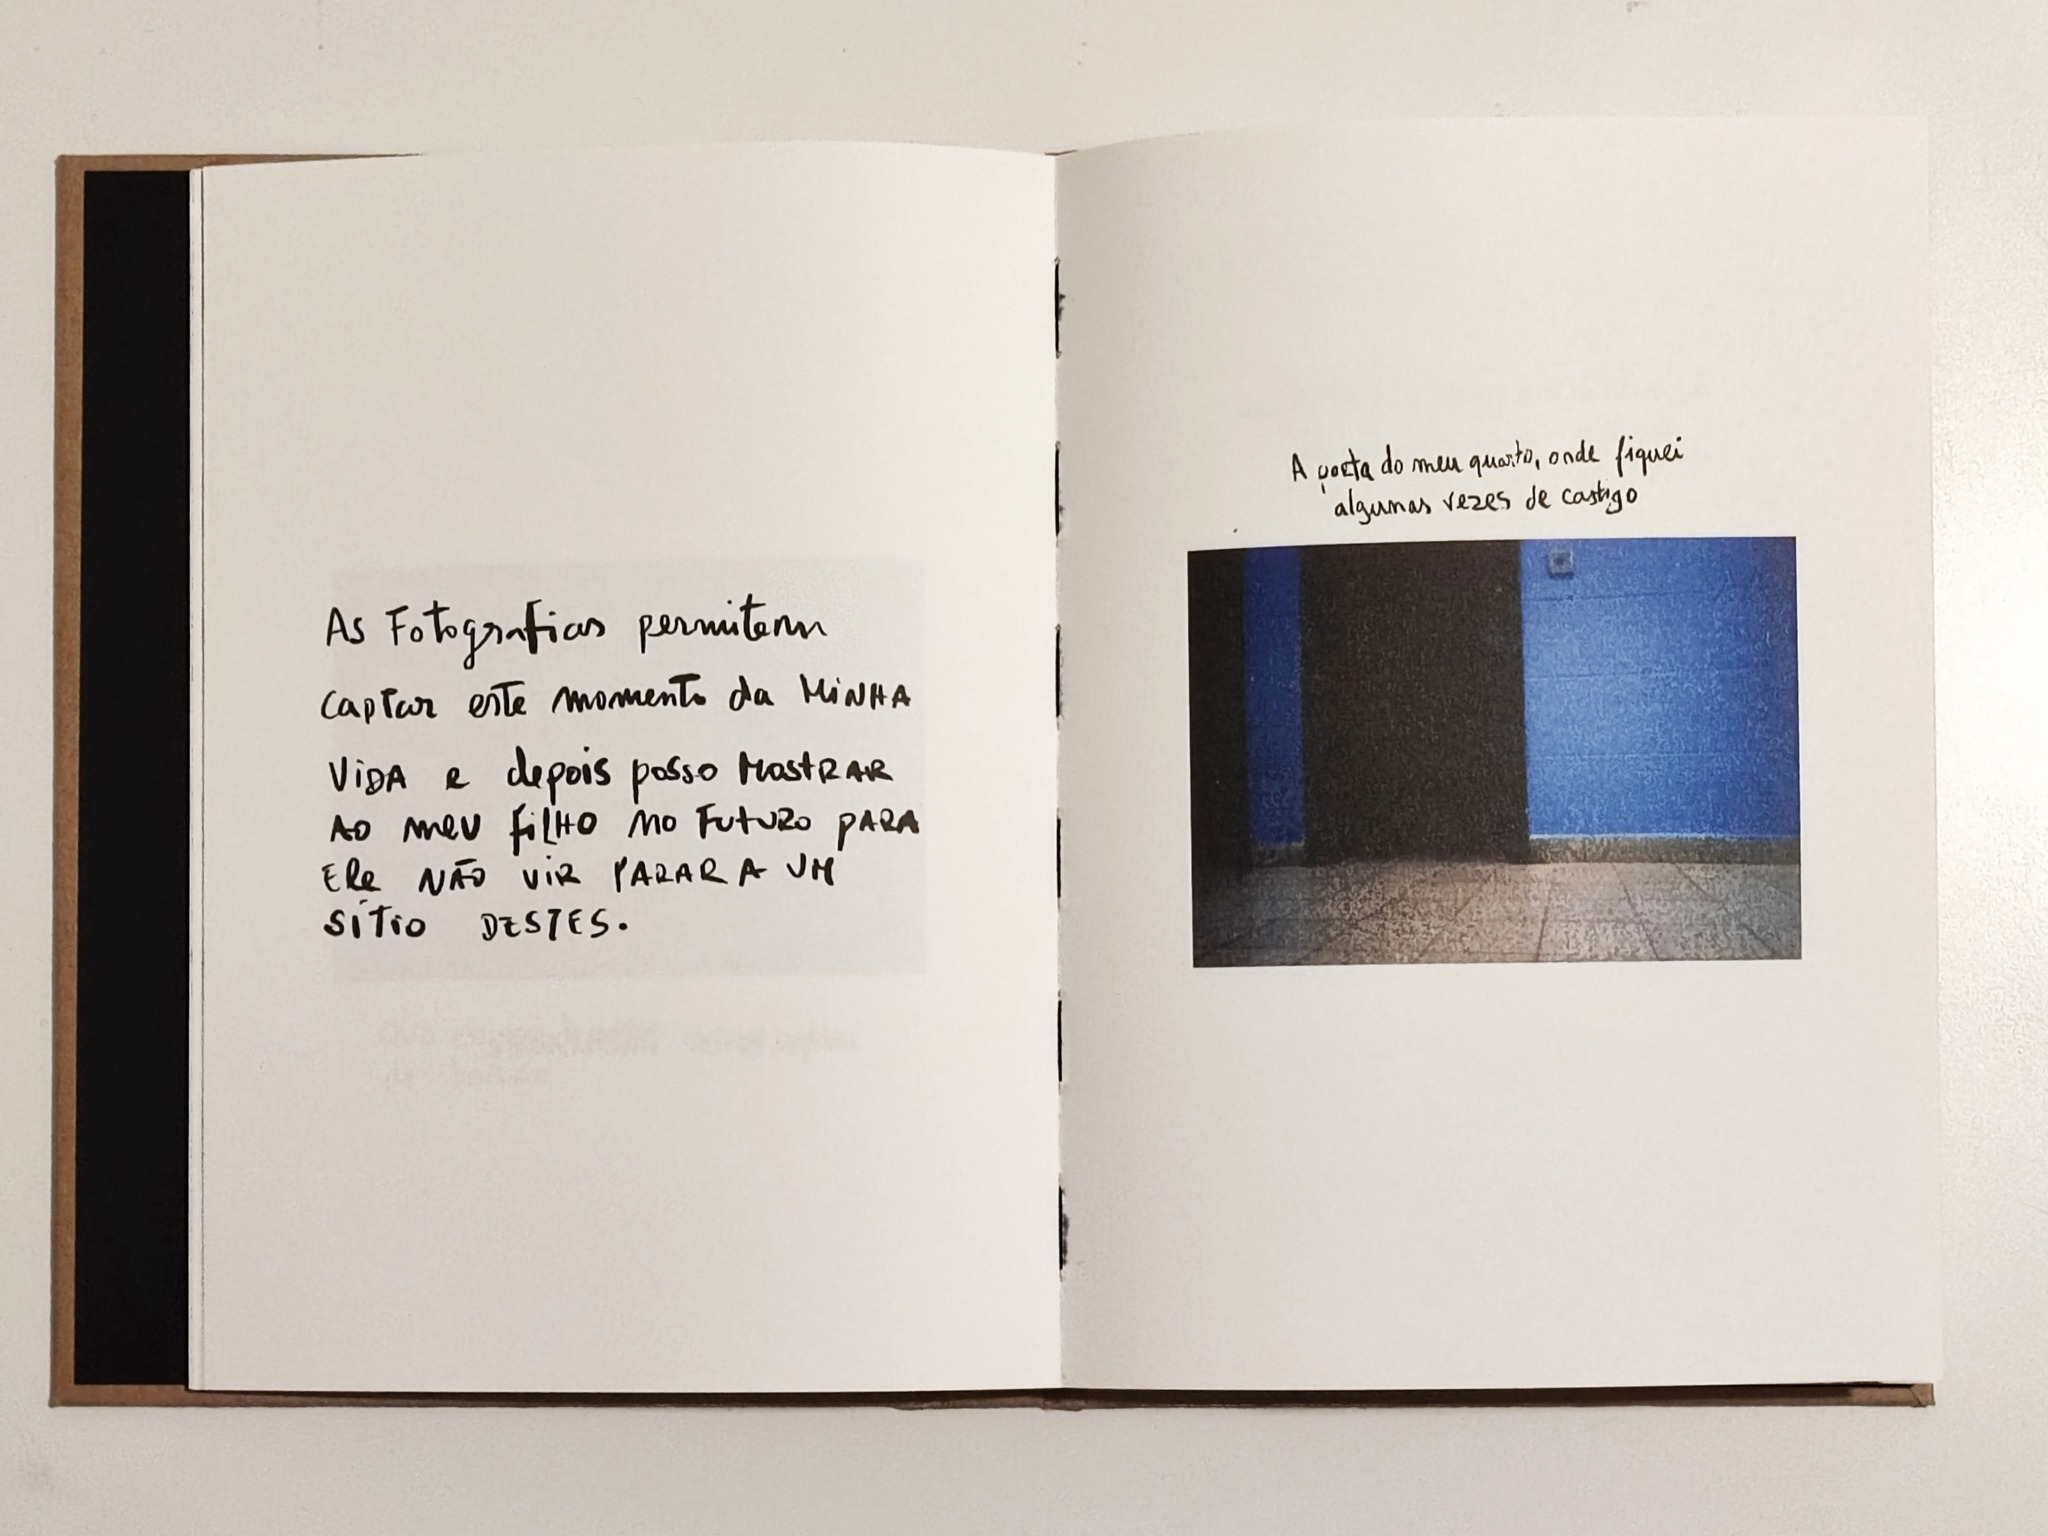 As Fotografias permitem
captar este momento da MINHA
VIDA e depois posso MOSTRAR
AO MEU FILHO NO FUTURO PARA
ELE NÃO VIR PARAR A UM
SÍTIO DESTES.
A porta do meu quarto, onde fiquei
algumas vezes de castigo